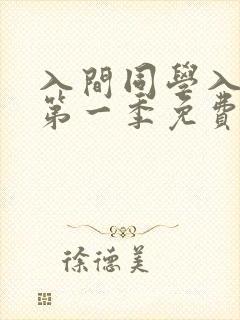 入間同學入
第一季免費
徐德美